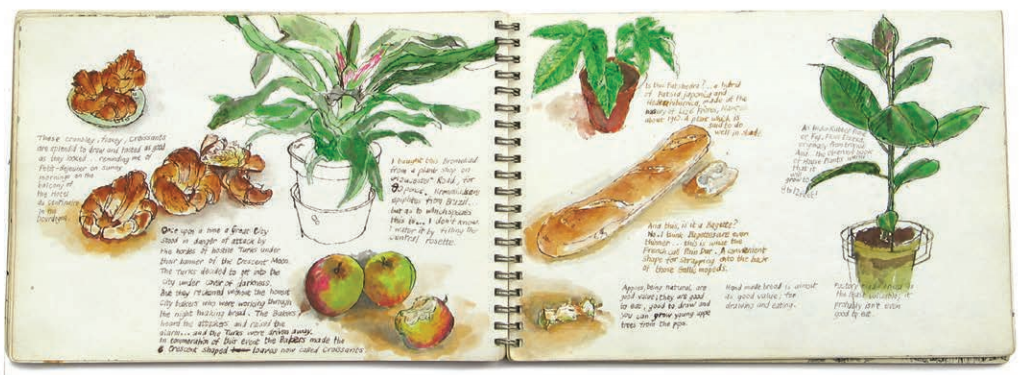 These crumbley, flakey, Croissants
are splendid to draw and tasted as good
as they looked... reminding me of
Petit-dejeuner on sunny
mornings on the
balcony of
the Hotel
in the
Dordogne.
Once upon a time a Great City
stood in danger of attack by
the hordes of hostile Turks under
their banner of the Crescent Moon.
The Turks decided to get into the
city under cover of darkness.
But they reckoned without the honest
City bakers who were working through
the night making bread. The Bakers
heard the attackers and raised the
alarm... and the Turks were driven away.
In commemoration of this event the Bakers made the
Crescent shaped loaves now called Croissants.
I bought this Bromeliad
from a plant shop on
Road, for
90 pence.
epiphytes from Brazil.
but as to which species
this is... I don't know.
I water it by filling the
central rosette.
Is this Fatshedera?... a hybrid
of Fatsia japonica and
Hedera hibernica, made at the
nursery of Lizé Frères, Nantes
about 1912. A plant which is
said to do
well in shade
And this, is it a Bagette?
No. I think Bagettes are even
thinner... this is what the
French call Pain. A convenient
shape for strapping onto the back
of those mopeds.
Apples, being natural, are
good value; they are good
to eat, good to draw and
you can grow young apple
trees from the pips.
Hand made bread is almost
as good value; for
drawing and eating.
An India Rubber Tree
or Fig, Ficus Elastica
originally from tropical
Asia.
of House Plants
that it
will
grow to
Factory made
probably isn't even
good to eat.